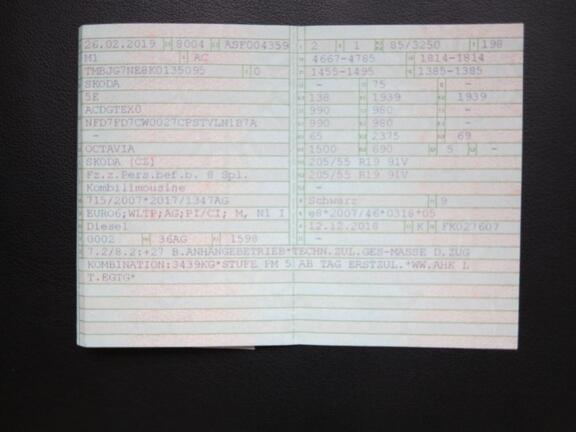 26.02.2019 8004 ASF004359
M1 AC
TMBJG7NE8K0135095 0
SKODA
5E
ACDGTEX0
NFD7FD7CW0027CPSTVLN1B7A
-
OCTAVIA
SKODA (CZ)
Fz.z.Pers.bef.b. 8 Spl.
Kombilimousine
715/2007*2017/1347AG
EURO6;WLTP;AG;PI/CI; M, N1 I
Diesel
0002 36AG 1598
2 1 85/3250 198
4667-4785 1814-1814
1455-1495 1385-1385
- 75 -
138 1939 1939
990 980 -
990 980 -
65 2375 69
1500 690 5 -
205/55 R19 91V
205/55 R19 91V
-
Schwarz 9
e8*2007/46*0318*05
12.12.2018 K FK027607
-
7.2/8.2:+27 B.ANHÄNGEBETRIEB*TECHN.ZUL.GES-MASSE D.ZUG
KOMBINATION:3439KG*STUFE PM 5 AB TAG ERSTZUL.*WW.AHK L
T.EGTG*